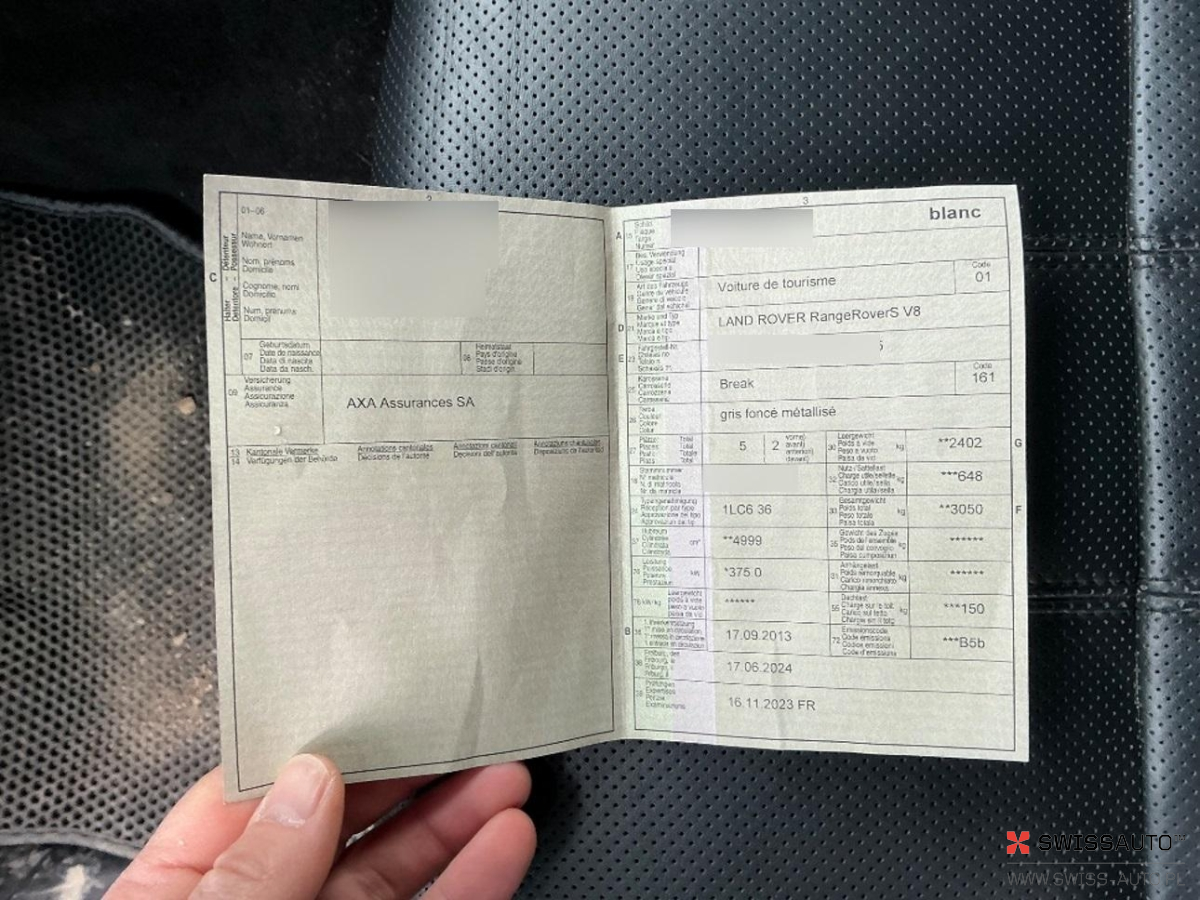 2
01–06
Name, Vornamen
Wohnort
Nom, prénoms
Domicile
Cognome, nomi
Domicilio
Num, prenums
Domicil
C
Halter – Détenteur
Detentore – Possessur
07
Geburtsdatum
Date de naissance
Data di nascita
Data da nasch.
08
Heimatstaat
Pays d'origine
Paese d'origine
Stadi d'origin
09
Versicherung
Assurance
Assicurazione
Assicuranza
AXA Assurances SA
13
14
Kantonale Vermerke
Verfügungen der Behörde
Annotations cantonales
Décisions de l'autorité
Annotazioni cantonali
Decisioni dell'autorità
Annotaziuns chantunalas
Disposiziuns da l'autoritad
3
blanc
A
15
Schild
Plaque
Targa
Numer
17
Bes. Verwendung
Usage spécial
Uso speciale
Diever spezial
19
Art des Fahrzeugs
Genre de véhicule
Genere di veicolo
Gener dal vehichel
Voiture de tourisme
Code
01
D
21
Marke und Typ
Marque et type
Marca e tipo
Marca e tip
LAND ROVER RangeRoverS V8
E
23
Fahrgestell-Nr.
Châssis no
Telaio n.
Schassis nr.
5
25
Karosserie
Carrosserie
Carrozzeria
Carossaria
Break
Code
161
26
Farbe
Couleur
Colore
Colur
gris foncé métallisé
27
Plätze: Total
Places: Total
Posti: Totale
Plazs: Total
5
2
vorne)
avant)
anteriori)
davant)
30
Leergewicht
Poids à vide
Peso a vuoto
Paisa da vid
kg
**2402
G
18
Stammnummer
N° matricule
N. di matricola
Nr. da matricla
32
Nutz-/Sattellast
Charge utile/sellette
Carico utile/sella
Chargia utila/sella
kg
***648
24
Typengenehmigung
Réception par type
Approvazione del tipo
Approvaziun da tip
1LC6 36
33
Gesamtgewicht
Poids total
Peso totale
Paisa totala
kg
**3050
F
37
Hubraum
Cylindrée
Cilindrata
Cilindrada
cm³
**4999
35
Gewicht des Zuges
Poids de l'ensemble
Peso del convoglio
Paisa cumposiziun
kg
******
76
Leistung
Puissance
Potenza
Prestaziun
kW
*375 0
31
Anhängelast
Poids remorquable
Carico rimorchiato
Chargia annexa
kg
******
78 kW/kg
Leergewicht
poids à vide
peso a vuoto
paisa da vid
******
55
Dachlast
Charge sur le toit
Carico sul tetto
Chargia sin il tetg
kg
***150
B
36
1. Inverkehrsetzung
1re mise en circulation
1a messa in circolazione
1. entrada en circulaziun
17.09.2013
72
Emissionscode
Code émissions
Codice emissioni
Code d'emissiuns
***B5b
38
Freiburg, den
Fribourg, le
Friburgo, il
Friburg, il
17.06.2024
39
Prüfungen
Expertises
Perizie
Examinaziuns
16.11.2023 FR
SWISSAUTO
WWW.SWISS-AUTO.PL